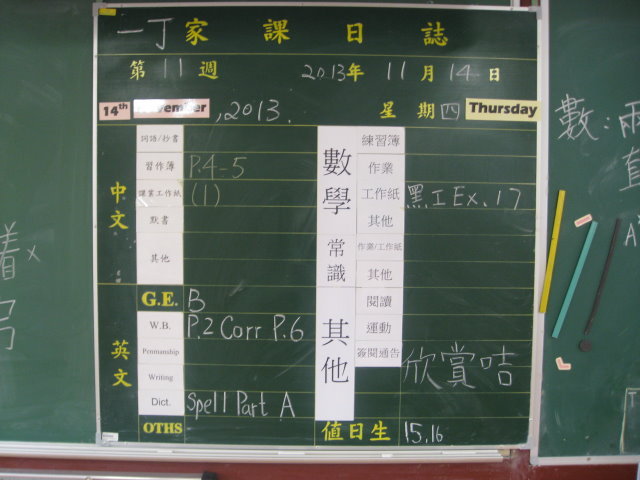 一丁家課日誌
第11週 2013年11月14日
14th November, 2013. 星期四 Thursday
中文
詞語/抄書
習作簿 P.4-5
課業工作紙 (1)
默書
其他
英文
G.E. B
W.B. P.2 Corr P.6
Penmanship
Writing
Dict. Spell Part A
OTHS
數學
練習簿
作業
工作紙 黑工Ex.17
其他
常識
作業/工作紙
其他
其他
閱讀
運動
簽閱通告 欣賞咭
值日生 15.16
數:
A
着x